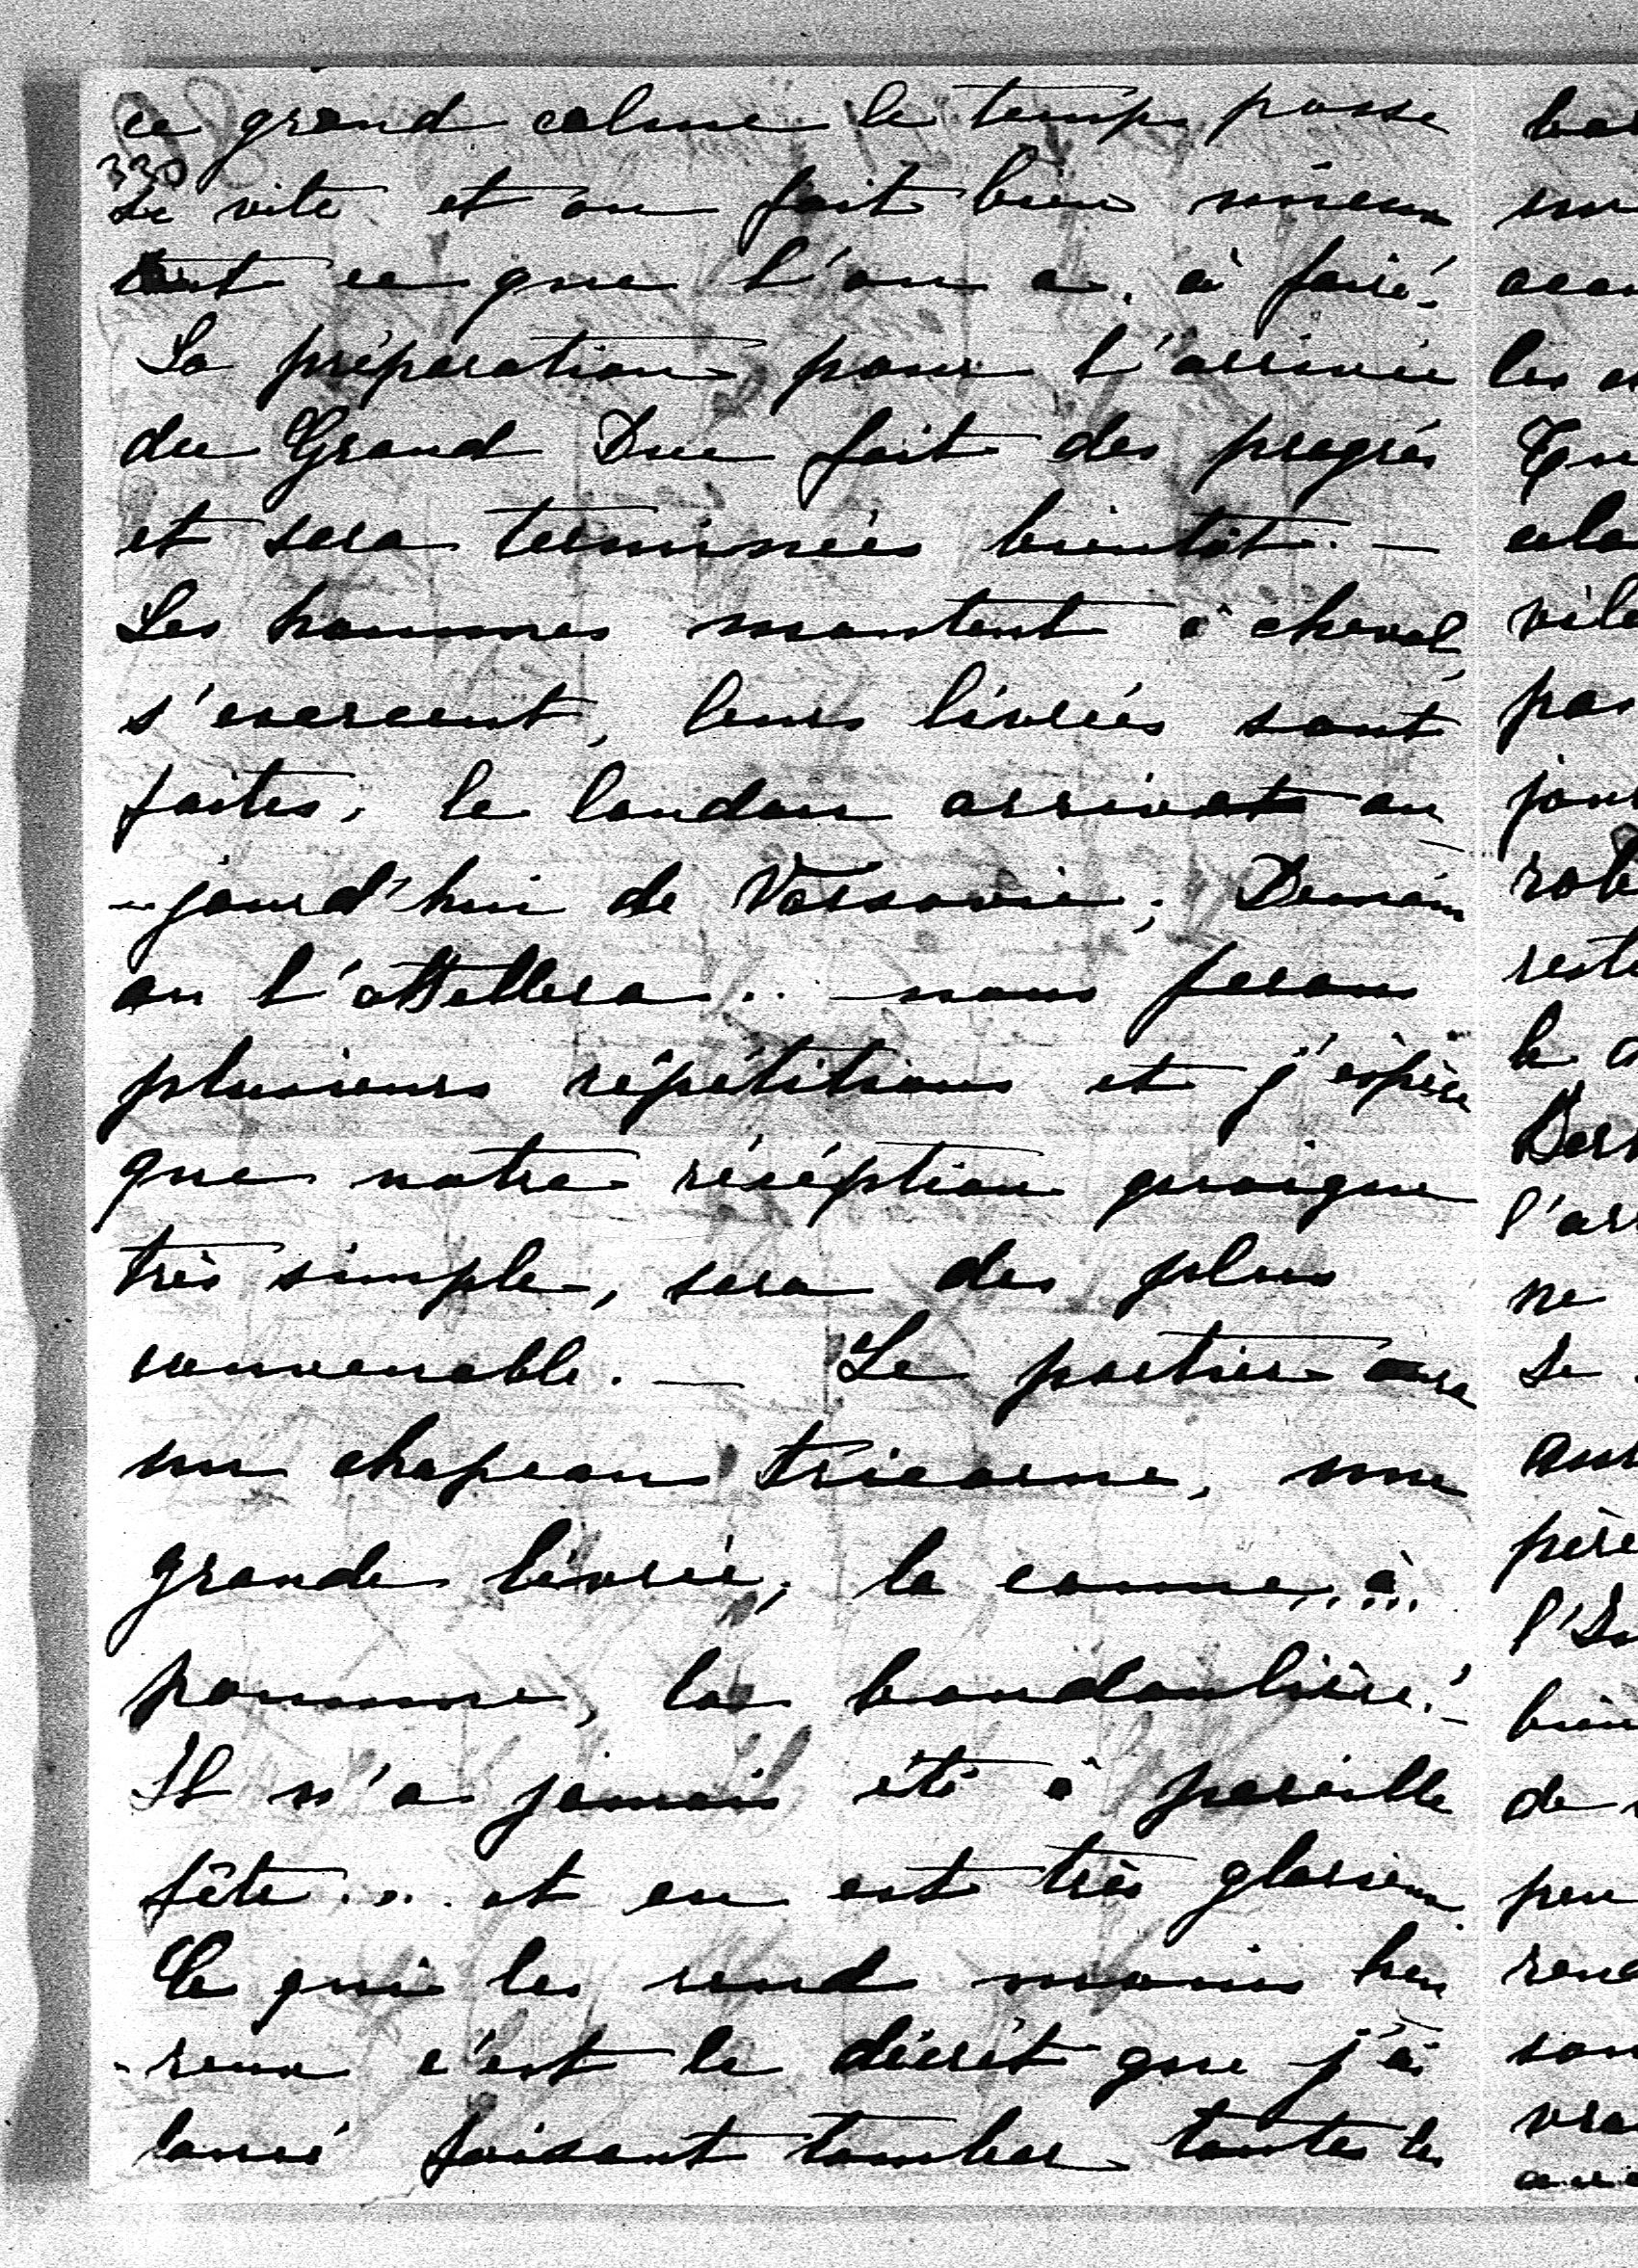 ce grand calme le temps passe
330
si vite et on fait bien mieux
tout ce que l'on a à faire.
La préparation pour l'arrivée
du Grand Duc fait des progrès
et sera terminées bientôt. —
Les hommes montent à cheval,
s'exercent, leurs livrées sont
faites, le landau arrivat au
-jourd'hui de Varsovie; Demain
on l'attellera... nous ferons
plusieurs répétitions et j'éspère
que notre récéption quoique
très simple, sera des plus
convenable. — Le portier aura
un chapeau tricorne, une
grande livrée, la canne à...
pomme, la bandoulière! —
Il n'a jamais été à pareille
fête... et en est très glorieux.
Ce qui les rend moins heu
-reux c'est le décrêt que j'ai
lancé faisant tomber toutes les
les
cela
pas
l'ar
ne
se
père
de
peu